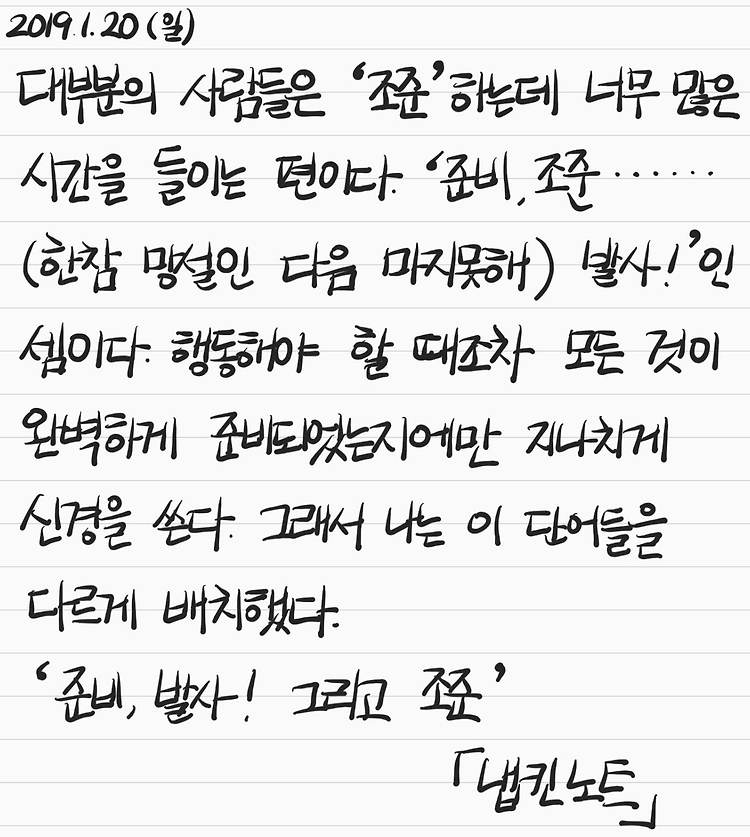 2019.1.20(일)
대부분의 사람들은 '조준'하는데 너무 많은
시간을 들이는 편이다. '준비, 조준······
(한참 망설인 다음 마지못해) 발사!'인
셈이다. 행동해야 할 때조차 모든 것이
완벽하게 준비되었는지에만 지나치게
신경을 쓴다. 그래서 나는 이 단어들을
다르게 배치했다.
'준비, 발사! 그리고 조준'
「냅킨노트」